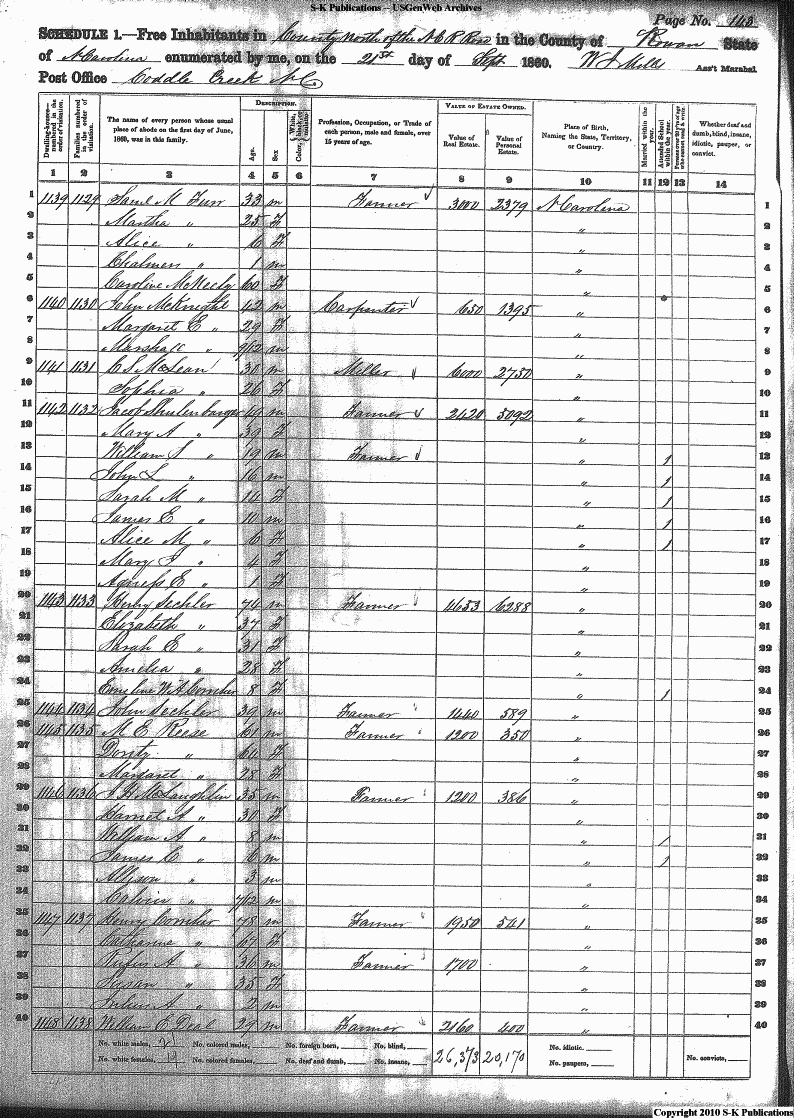 S-K Publications – USGenWeb Archives
Page No. 143
SCHEDULE 1.—Free Inhabitants in County North of the N C R Road in the County of Rowan State
of N Carolina enumerated by me, on the 21st day of Sept 1860. Ass't Marshal
Post Office Coddle Creek N C
Dwelling-houses—numbered in the order of visitation. Families numbered in the order of visitation. The name of every person whose usual place of abode on the first day of June, 1860, was in this family. DESCRIPTION. Age. Sex. Color, Profession, Occupation, or Trade of each person, male and female, over 15 years of age. VALUE OF ESTATE OWNED. Value of Real Estate. Value of Personal Estate. Place of Birth, Naming the State, Territory, or Country. Married within the year. Attended School within the year. Whether deaf and dumb, blind, insane, idiotic, pauper, or convict.
1 2 3 4 5 6 7 8 9 10 11 12 13 14
1 1139 1129 Saml M Furr 33 m Farmer 3000 2379 N Carolina 1
2 Martha " 25 F " 2
3 Alice " 6 F " 3
4 Chalmers " 1 m " 4
5 Caroline McNeely 60 F " 5
6 1140 1130 John McKnight 42 m Carpenter 650 1395 " 6
7 Margaret E " 29 F " 7
8 Marshall " 9/12 m " 8
9 1141 1131 C S McLean 30 m Miller 6000 2750 " 9
10 Sophia " 26 F " 10
11 1142 1132 Jacob Shulenbarger 49 m Farmer 2420 5092 " 11
12 Mary A " 39 F " 12
13 William S " 19 m Farmer " 1 13
14 John L " 16 m " 1 14
15 Sarah M " 14 F " 1 15
16 James E " 10 m " 1 16
17 Alice M " 6 F " 1 17
18 Mary J " 4 F " 18
19 Agness E " 1 F " 19
20 1143 1133 Henry Sechler 74 m Farmer 4653 6288 " 20
21 Elizabeth " 37 F " 21
22 Sarah E " 31 F " 22
23 Amelia " 28 F " 23
24 Emeline W A Corriher 8 F " 1 24
25 1144 1134 John Sechler 39 m Farmer 1440 589 " 25
26 1145 1135 M E Reese 61 m Farmer 1200 350 " 26
27 Dority " 60 F " 27
28 Margaret " 28 F " 28
29 1146 1136 McLaughlin 35 m Farmer 1200 386 " 29
30 Harriet A " 30 F " 30
31 William A " 8 m " 1 31
32 James C " 6 m " 1 32
33 Allison " 3 m " 33
34 Calvin " 7/12 m " 34
35 1147 1137 Henry Corriher 78 m Farmer 1950 541 " 35
36 Catharine " 67 F " 36
37 Rufus A " 36 m Farmer 1700 " 37
38 Susan " 35 F " 38
39 Julius A " 2 m " 39
40 1148 1138 William C Deal 29 m Farmer 2160 400 " 40
No. white males, 21 No. colored males, No. foreign born, No. blind, 26,373 20,170 No. idiotic, No. convicts,
No. white females, 19 No. colored females, No. deaf and dumb, No. insane, No. paupers,
Copyright 2010 S-K Publications